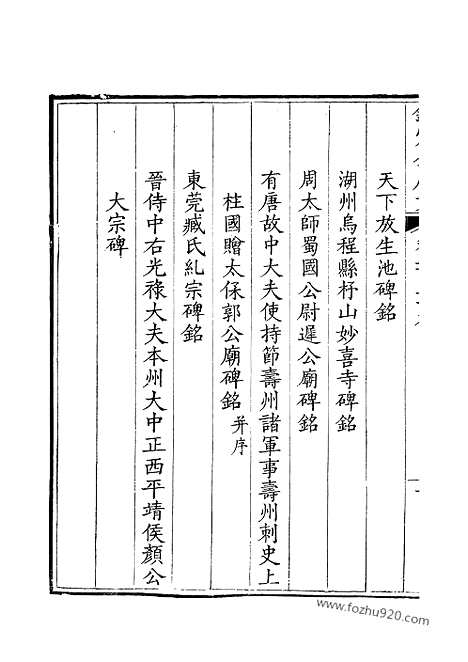 天下放生池碑銘
湖州烏程縣杼山妙喜寺碑銘
周太師蜀國公尉遲公廟碑銘
有唐故中大夫使持節壽州諸軍事壽州刺史上
柱國贈太保郭公廟碑銘并序
東莞臧氏糺宗碑銘
晉侍中右光祿大夫本州大中正西平靖侯顏公
大宗碑
www.fozhu920.com